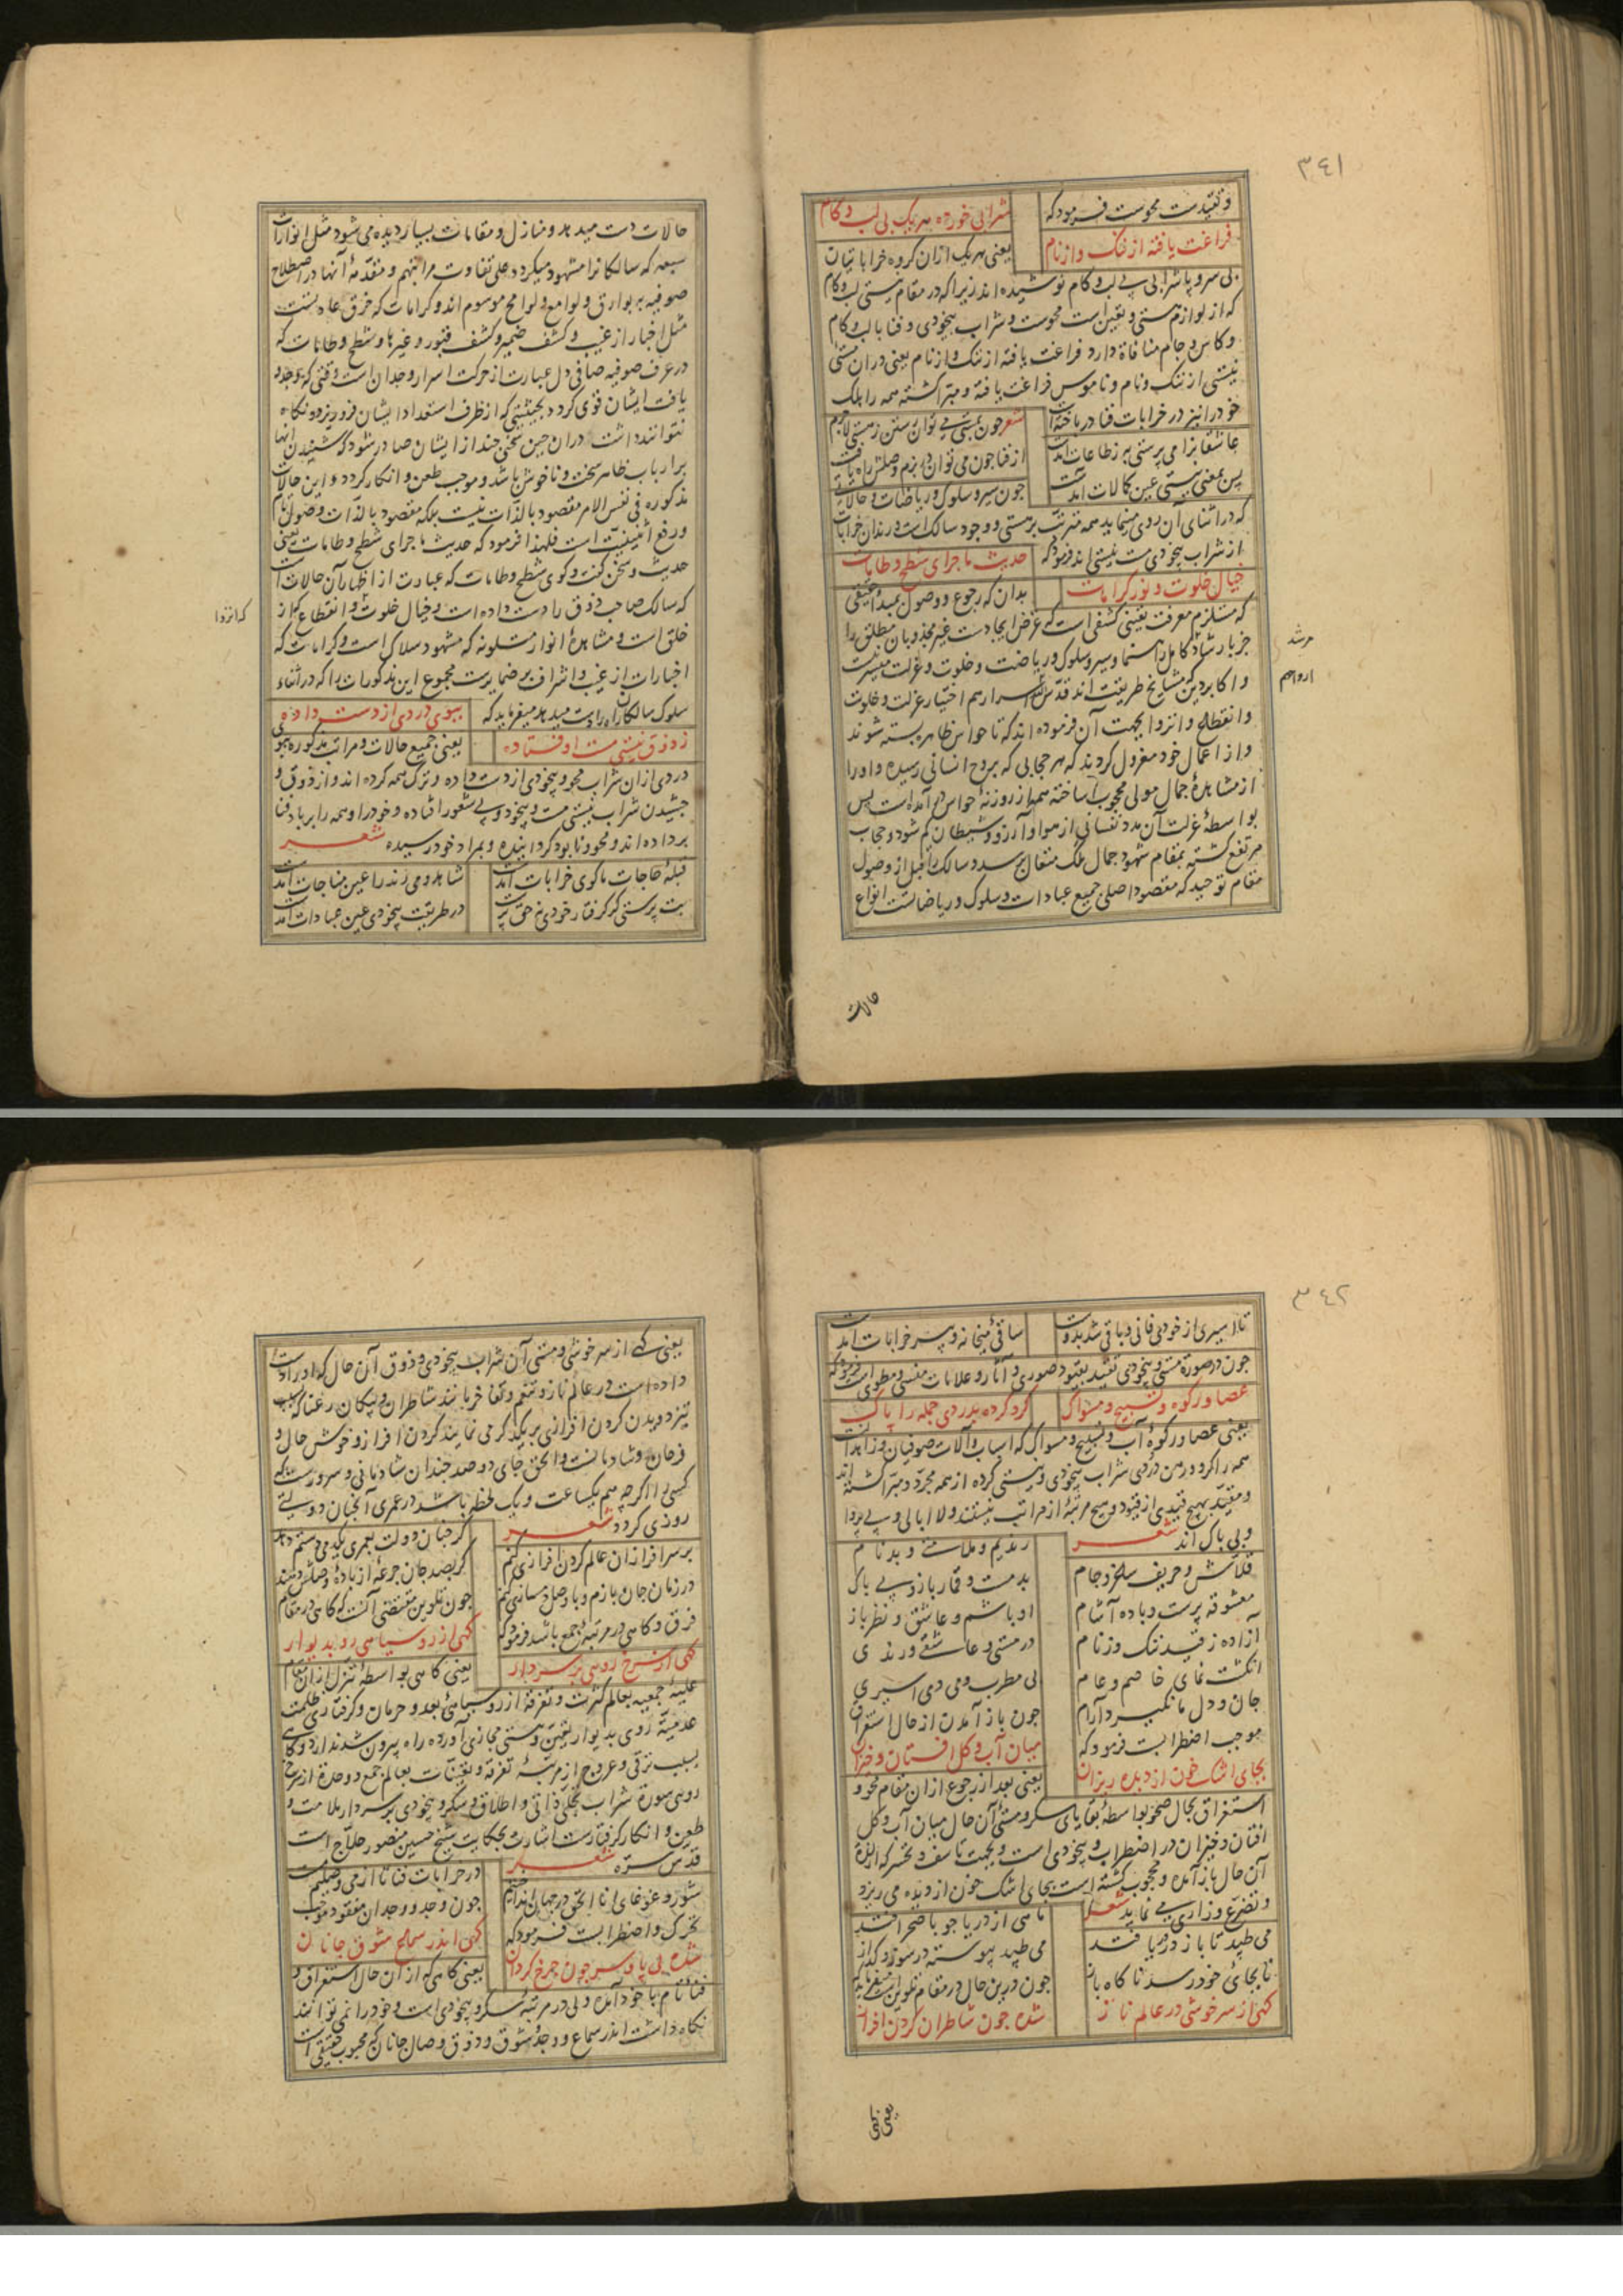 ۳۴۱
و تقیدست محوست فرمود که شرابی خورده هر یک بی لب و کام
فراغت یافته از ننگ و از نام یعنی هر یک ازان کروه خراباتیان
بی سر و پا شرابی بی لب و کام نوشیده اند زیرا که در مقام نیستی لب و کام
که از لوازم هستی و تعین است محوست و شراب بیخودی و فنا با لب و کام
و کاس و جام منافاة دارد فراغت یافته از ننک و از نام یعنی دران مستی
نیستی از ننک و نام و ناموس فراغت یافته و مبرا کشته همه را بلک
خود را نیز در خرابات فنا درباخته اند شعر چون ز هستی می توان رستن ز مستی لاجرم
عاشقانرا می پرستی به ز طاعات آمدست از فنا چون می توان در بزم وصلش راه یافت
پس بمعنی نیستی عین کمالات آمدست چون سیر و سلوک و ریاضات و حالاتی
که در اثنای آن روی مینماید همه مترتب بر هستی و وجود سالک است و رندان خرابات
از شراب بیخودی مست نیستی اند فرمود که حدیث ماجرای شطح و طامات
خیال خلوت و نور کرامات بدان که رجوع و وصول بمبدأ حقیقی
که مستلزم معرفت یقینی کشفی است که غرض ایجادست غیر مجذوبان مطلق را
جز بارشاد کامل راهنما و سیر و سلوک و ریاضت و خلوت و عزلت میسر نیست
مرشد
و اکابر دین که مشایخ طریقت اند قدس الله اسرارهم اختیار عزلت و خلوت
ارواحم
و انقطاع و انزوا بجهت آن فرموده اند که تا حواس ظاهره بسته شوند
و از اعمال خود معزول کردند که هر حجابی که بروح انسانی رسیده و او را
از مشاهدهٔ جمال مولی محجوب ساخته همه از روزنهٔ حواس در آمده است پس
بواسطهٔ عزلت آن مدد نفسانی از هوا و آرزو و شیطان کم شود و حجاب
مرتفع کشته بمقام شهود جمال ملک متعال برسد و سالک را قبل از وصول
مقام توحید که مقصود اصلی جمیع عبادات و سلوک و ریاضات است انواع
حالات
حالات دست میدهد و منازل و مقامات بسیار دیده می شود مثل انوارات
سبعه که سالکانرا مشهود میکردد علی تفاوت مراتبهم و مقدمهٔ آنها در اصطلاح
صوفیه به بوارق و لوامع و لوایح موسوم اند و کرامات که خرق عادتست
مثل اخبار از غیب و کشف ضمیر و کشف قبور و غیرها و شطح و طامات که
در عرف صوفیه صافی دل عبارت از حرکت اسرار وجدان است وقتی که وجد و
یافت ایشان قوی کردد بحیثیتی که از ظرف استعداد ایشان فرو ریزد و نکاه
نتوانند داشت دران حین سخنی چند از ایشان صادر شود که شنیدن آنها
بر ارباب ظاهر سخت و ناخوش باشد و موجب طعن و انکار کردد و این حالات
مذکوره فی نفس الامر مقصود بالذات نیست بلکه مقصود بالذات وصول تام
و رفع اثنینیت است فلهذا فرمود که حدیث ماجرای شطح و طامات یعنی
حدیث و سخن کفت و کوی شطح و طامات که عبارت از اظهار آن حالات است
که سالک صاحب ذوق را دست داده است و خیال خلوت و انقطاع که از
که انزوا
خلق است و مشاهدهٔ انوار متلونه که مشهود سلاک است و کرامات که
اخبارات از غیب و اشراف بر ضمایرست مجموع این مذکورات را که در اثناء
سلوک سالکان راه را دست میدهد میفرماید که ببوی دردی از دست داده
ز ذوق نیستی مست اوفتاده یعنی جمیع حالات و مراتب مذکوره ببوی
دردی ازان شراب محو و بیخودی از دست داده و ترک همه کرده اند و از ذوق و
چشیدن شراب نیستی مست و بیخود و بی شعور افتاده و خود را و همه را بر باد فنا
بر داده اند و محو و نابود کردانیده و بمراد خود رسیده شعر
قبلهٔ حاجات ما کوی خرابات آمدست شاهد و می رند را عین مناجات آمدست
بت پرستی کر کرفتار خودی نه حق پرست در طریقت بیخودی عین عبادات آمدست
۳۴۲
تا اسیری از خودی فانی و باقی شد بدوست ساقی میخانه و پیر خرابات آمدست
چون در صورة مستی و بیخودی تقید بقیود صوری و آثار و علامات منسی و مطوی است فرمود که
عصا و رکوه و تسبیح و مسواک کرو کرده بدردی جمله را پاک
یعنی عصا و رکوهٔ آب و تسبیح و مسواک که اسباب و آلات صوفیان و زاهدانست
همه را کرو و رهن دردی شراب بیخودی و نیستی کرده از همه مجرد و مبرا کشته اند
و مقید بهیچ قیدی از قیود و هیچ مرتبه از مراتب نیستند و لاابالی و بی پروا
و بی باک اند شعر رندیم و ملامتی و بدنام
قلاش و حریف ساغر و جام بدمست و قمارباز و بی باک
معشوقه پرست و باده آشام اوباشم و عاشق و نظرباز
آزاده ز قید ننک و ز نام در مستی و عاشقی و رندی
انکشت نمای خاص و عام بی مطرب و می دمی اسیری
جان و دل ما نکیرد آرام چون باز آمدن از حال استغراق
موجب اضطرابست فرمود که میان آب و کل افتان و خیزان
بجای اشک خون از دیده ریزان یعنی بعد از رجوع ازان مقام محو و
استغراق بحال صحو بواسطهٔ بقایای سکر و مستی آن حال میان آب و کل
افتان و خیزان در اضطراب و بیخودی است و بجهت تاسف و تحسر که از لذة
آن حال باز آمده و محجوب کشته است بجای اشک خون از دیده می ریزد
و تضرع و زاری می نماید شعر ماهی از دریا چو با صحرا فتد
می طپد تا باز در دریا فتد می طپد پیوسته در سوز و کداز
تا بجای خود رسد ناکاه باز چون درین حال در مقام تلوین است میفرماید که
کهی از سرخوشی در عالم ناز شده چون شاطران کردن افراز
یعنی کهی
یعنی کهی از سر خوشی و مستی آن شراب بیخودی و ذوق آن حال که او را دست
داده است در عالم ناز و تنعم و تفاخر مانند شاطران و پیکان رعنا که بسبب
تیز دویدن کردن افرازی بر یکدیکر می نمایند کردن افراز و خوش حال و
فرحان و شادمانست و الحق جای دو صد چندان شادمانی و سرورست که
کسی را اکر چه هم یکساعت و یک لحظه باشد در عمری آنچنان دولتی
روزی کردد شعر کر چنان دولت بعمری یکدمی دستم دهد
بر سرافرازان عالم کردن افرازی کنم کر بصد جان جرعهٔ از بادهٔ وصلش دهند
در زمان جان بازم و با وصل دمسازی کنم چون تلوین مقتضی آنست که کاهی در مقام
فرق و کاهی در مرتبهٔ جمع باشد فرمود که کهی از رو سیاهی رو بدیوار
کهی از سرخ رویی بر سر دار یعنی کاهی بواسطهٔ تنزل ازان مقام
علیهٔ جمعیه بعالم کثرت و تفرقه از رو سیاهی بعد و حرمان و کرفتاری ظلمت
عدمیة روی بدیوار تعین و هستی مجازی آورده راه بیرون شدن ندارد و کاهی
بسبب ترقی و عروج از مرتبهٔ تفرقه و تعینات بعالم جمع و وحدة از سرخ
رویی سورة شراب تجلی ذاتی و اطلاق و سکر و بیخودی بر سر دار ملامت و
طعن و انکار کرفتارست اشارت بحکایت شیخ حسین منصور حلاج است
قدس سره شعر در خرابات فنا تا از می وصلیم مست
شور و غوغای انا الحق در جهان انداختیم چون وجد و وجدان مفقود موجب
تحرک و اضطرابست فرمود که کهی اندر سماع شوق جانان
شده بی پا و سر چون چرخ کردان یعنی کاهی که ازان حال استغراق و
فنا تمام با خود آمده ولی در مرتبهٔ سکر و بیخودی است و خود را نمی تواند
نکاه داشت اندر سماع و وجد و شوق و ذوق وصال جانان که محبوب حقیقی است